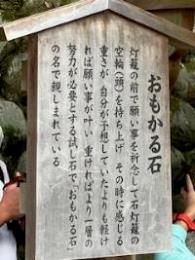 おもかる石
灯籠の前で願い事を祈念して石灯籠の
空輪（頭）を持ち上げ　その時に感じる
重さが、自分が予想していたよりも軽け
れば願い事が叶い　重ければより一層の
努力が必要とする試し石で「おもかる石」
の名で親しまれている